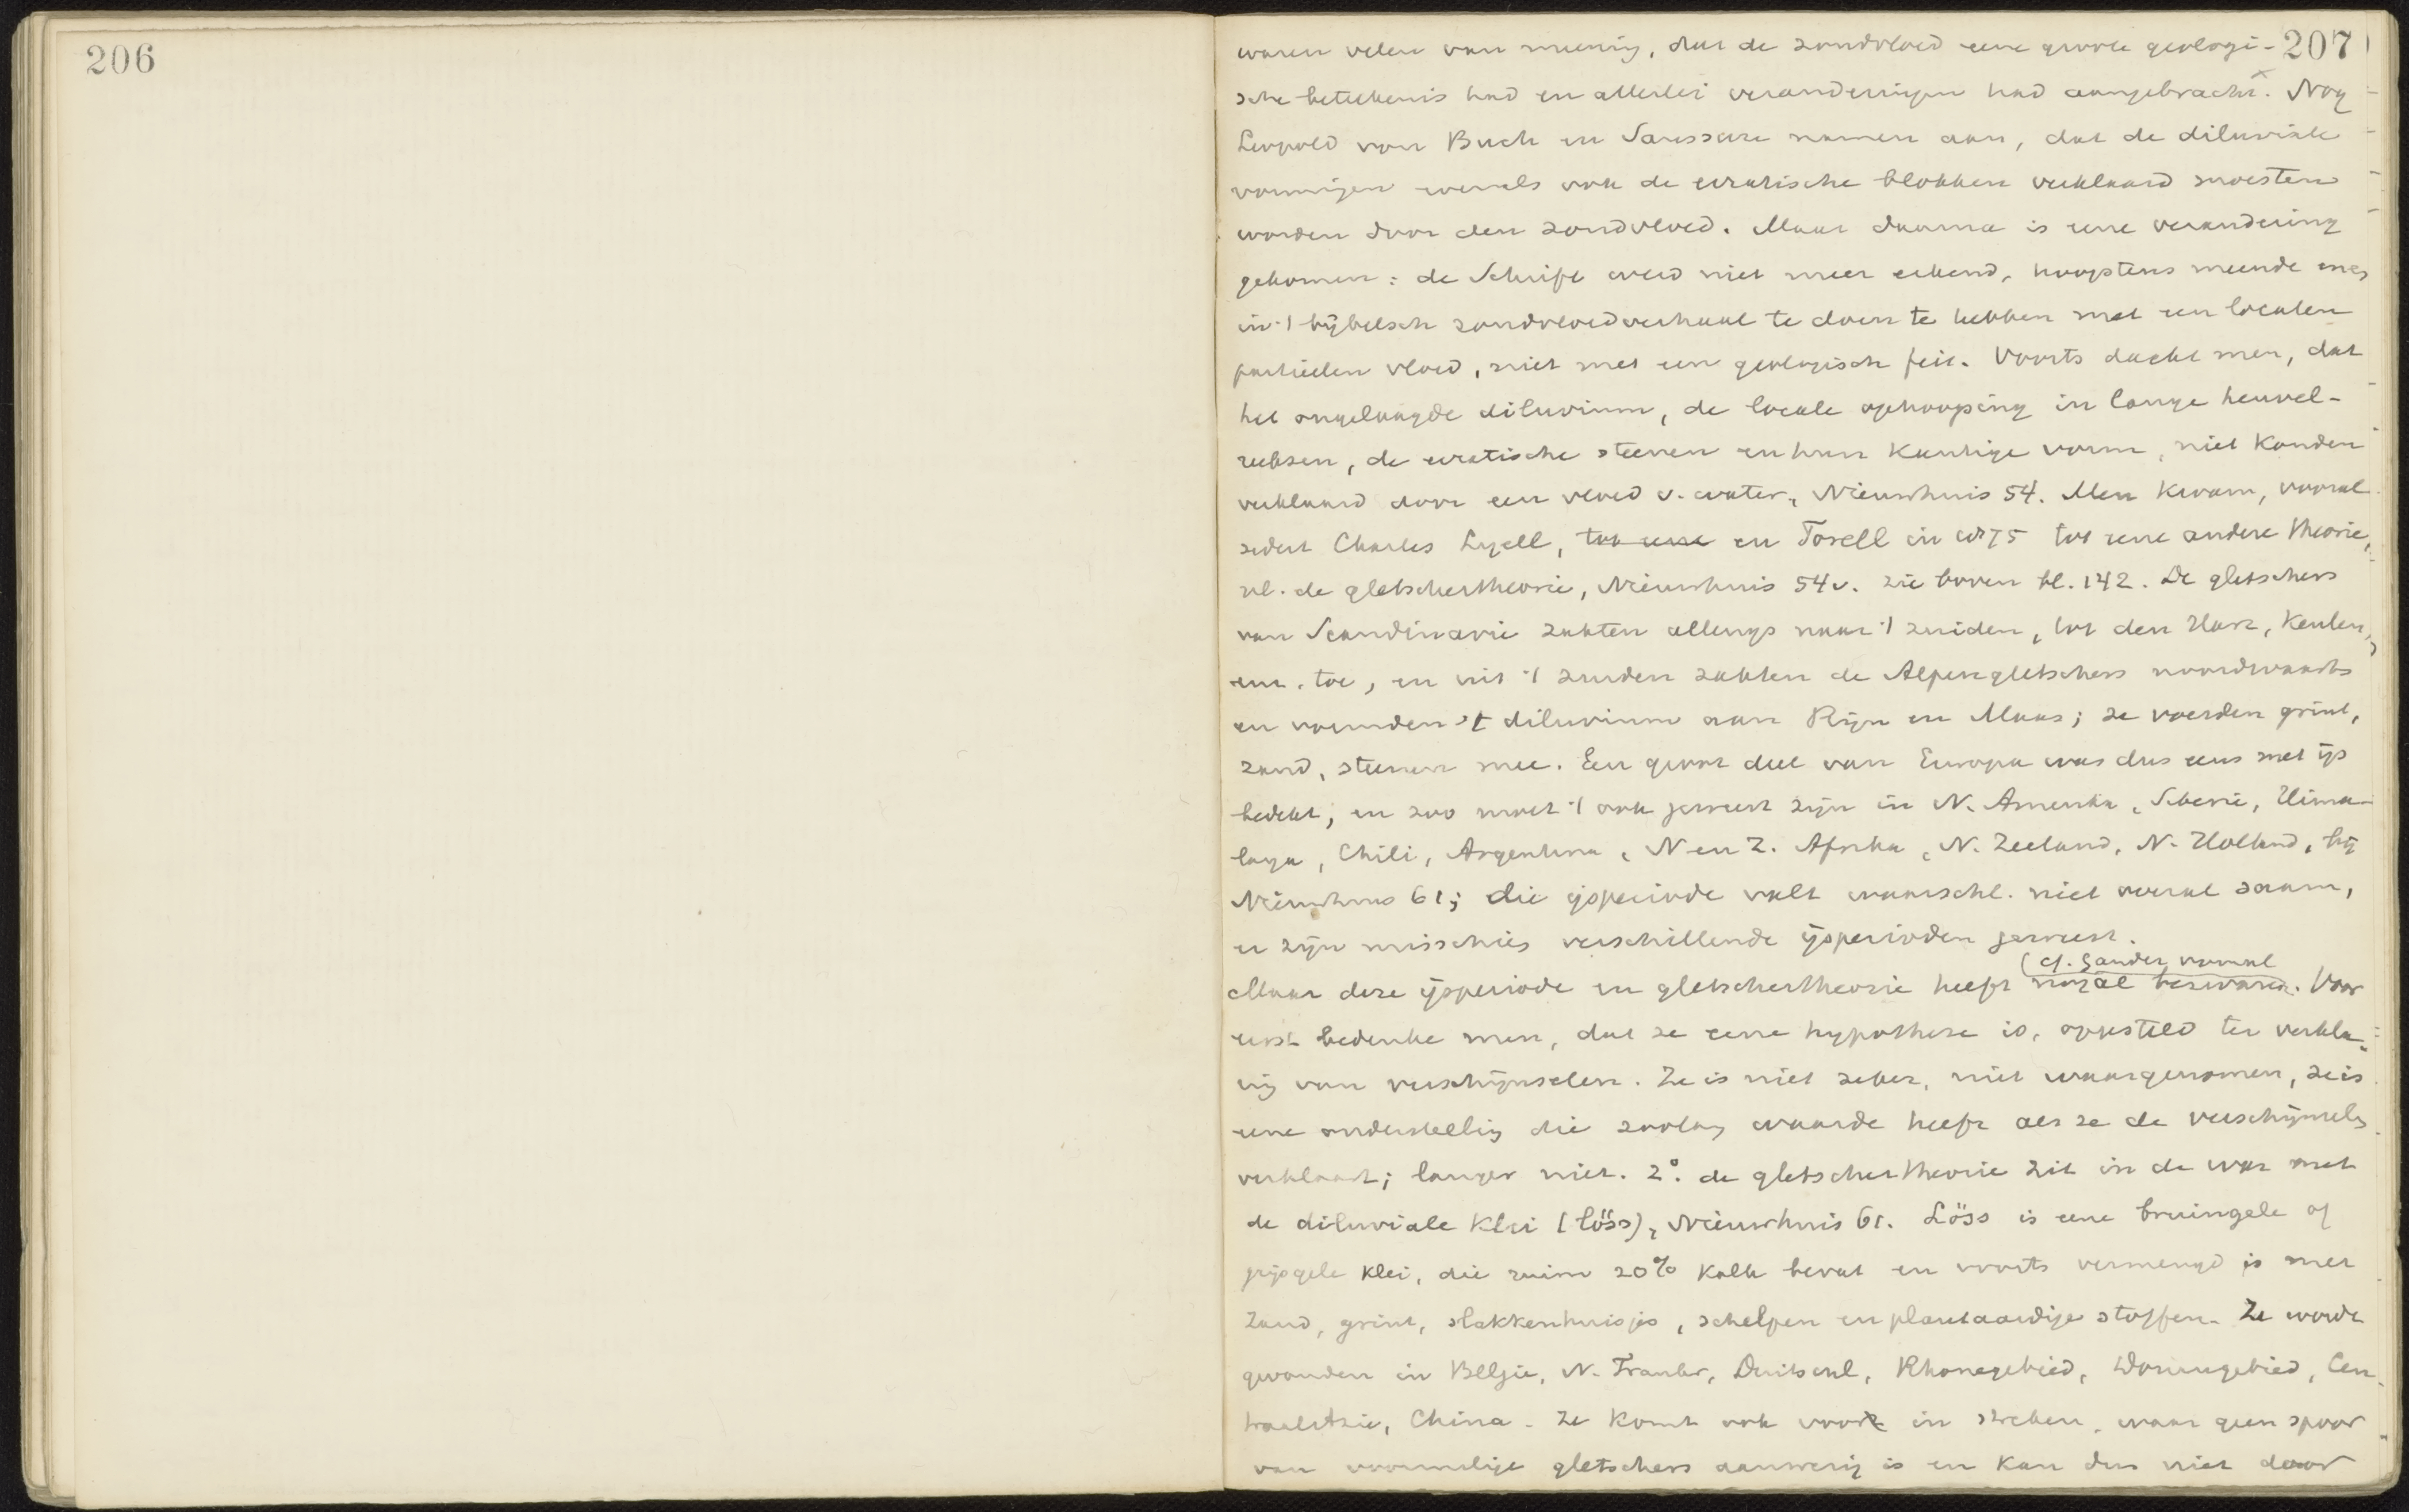 206
207
waren velen van meening, dat de zondvloed eene groote geologi-
sche beteekenis had en allerlei veranderingen had aangebracht. Nog
Leopold von Buch en Saussure namen aan, dat de diluviale
vormingen evenals ook de erratische blokken verklaard moesten
worden door den zondvloed. Maar daarna is eene verandering
gekomen: de Schrift werd niet meer erkend, hoogstens meende men
in 't bijbelsch zondvloedverhaal te doen te hebben met een localen
partieelen vloed, niet met een geologisch feit. Voorts dacht men, dat
het ongelaagde diluvium, de locale ophooping in lange heuvel-
reeksen, de erratische steenen en hun kantige vorm, niet konden
verklaard door een vloed v. water, Nieuwhuis 54. Men kwam, vooral
sedert Charles Lyell, tot eene en Torell in 1875 tot eene andere theorie,
nl. de gletschertheorie, Nieuwhuis 54v. zie boven bl. 142. De gletschers
van Scandinavie zakten allengs naar 't zuiden, tot den Harz, Keulen,
enz. toe, en uit 't zuiden zakten de Alpengletschers noordwaarts
en vormden 't diluvium aan Rijn en Maas; ze voerden grint,
zand, steenen mee. Een groot deel van Europa was dus eens met ijs
bedekt, en zoo moet 't ook geweest zijn in N. Amerika, Siberie, Hima-
laya, Chili, Argentina, N en Z. Afrika, N. Zeeland, N. Holland, bij
Nieuwhuis 61; die ijsperiode valt waarschl. niet overal saam,
er zijn misschien verschillende ijsperioden geweest.
(cf. Sander vooral
Maar deze ijsperiode en gletschertheorie heeft nogal bezwaren. Voor
eerst bedenke men, dat ze eene hypothese is, opgesteld ter verkla-
ring van verschijnselen. Ze is niet zeker, niet waargenomen, ze is
eene onderstelling die zoolang waarde heeft als ze de verschijnselen
verklaart; langer niet. 2°. de gletschertheorie zit in de war met
de diluviale klei (löss), Nieuwhuis 61. Löss is eene bruingele of
grijsgele klei, die ruim 20% kalk bevat en voorts vermengd is met
zand, grint, slakkenhuisjes, schelpen en plantaardige stoffen. Ze wordt
gevonden in Belgie, N. Frankr, Duitschl, Rhonegebied, Donaugebied, Cen-
traalAzie, China. Ze komt ook voor in streken, waar geen spoor
van voormalige gletschers aanwezig is en kan dus niet door